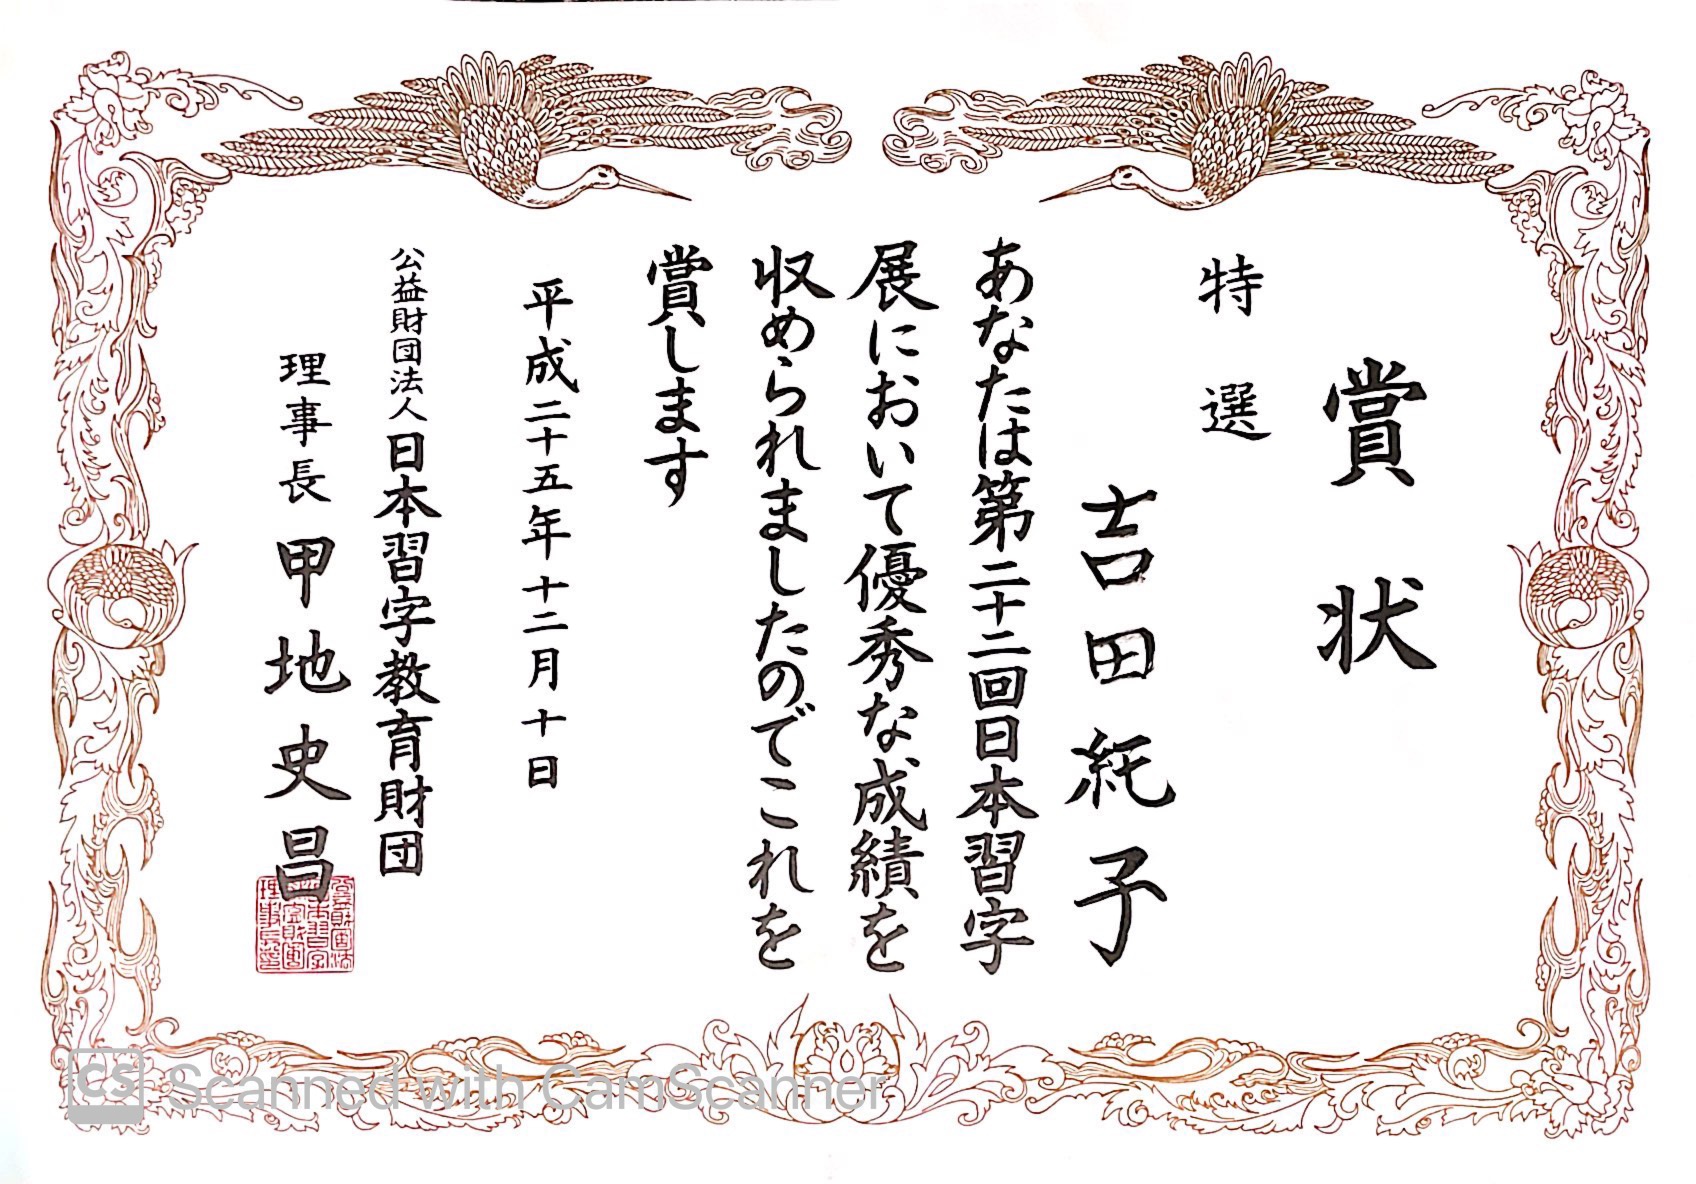 賞状
特選
吉田紀子
あなたは第二十二回日本習字
展において優秀な成績を
収められましたのでこれを
賞します
平成二十五年十二月十日
公益財団法人日本習字教育財団
理事長 甲地史昌
CS Scanned with CamScanner